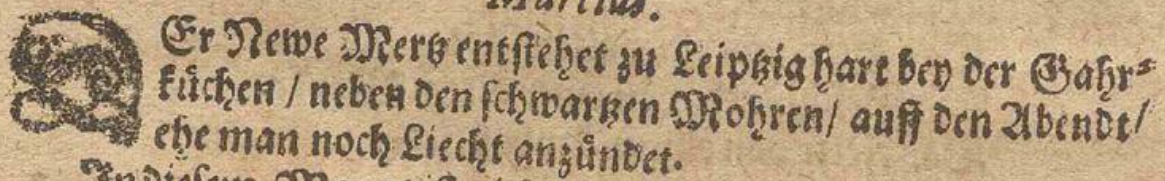 Martius.
DEr Newe Mertz entstehet zu Leiptzig hart bey der Gahr⸗
küchen / neben den schwartzen Mohren / auff den Abendt /
ehe man noch Liecht anzündet.
In diesem